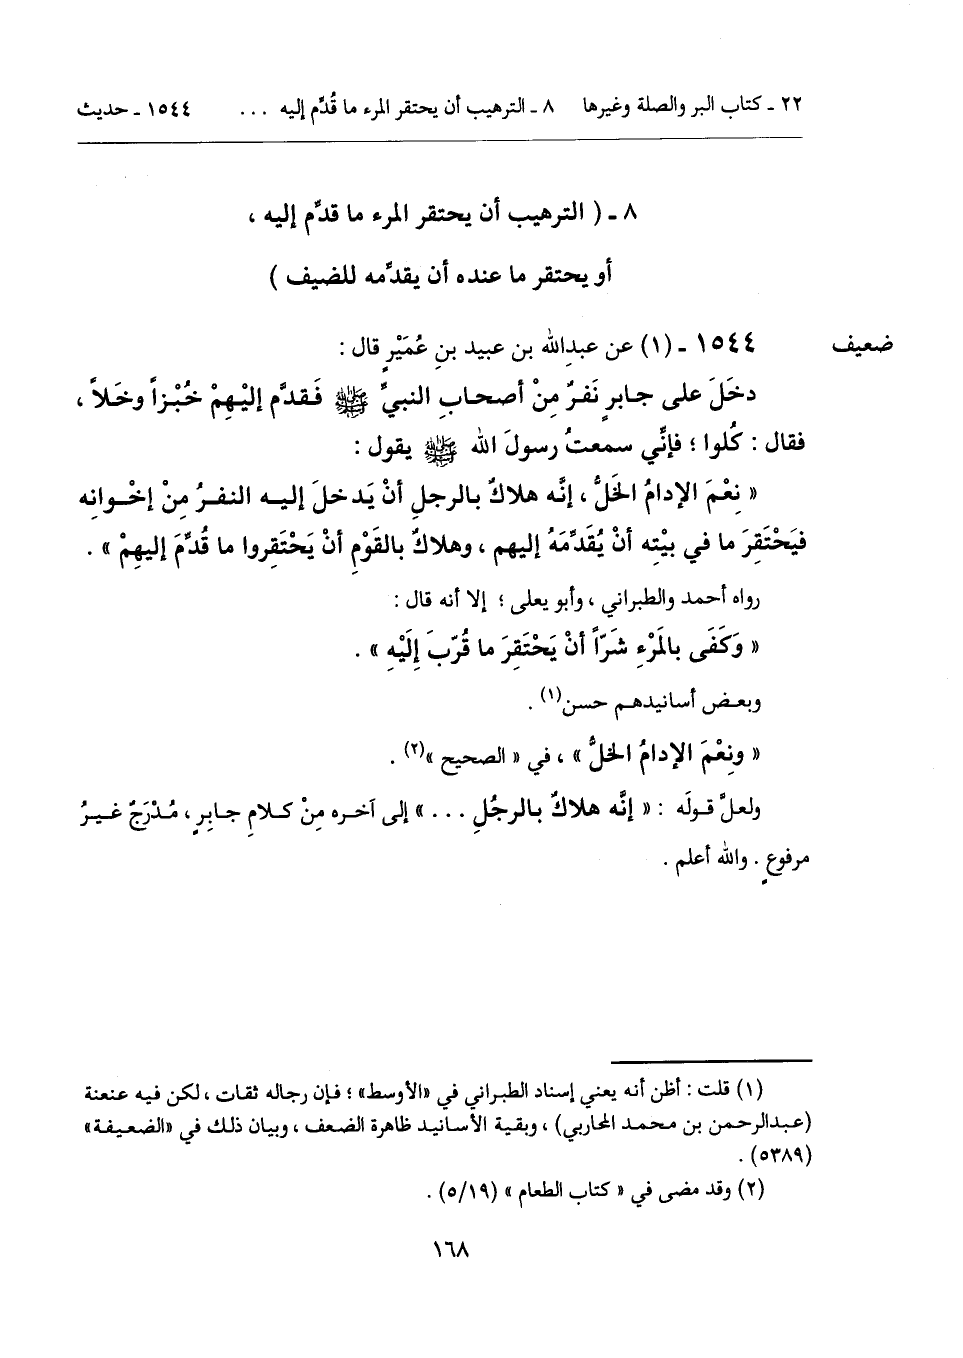 ٢٢ ـ كتاب البر والصلة وغيرها ٨ ـ الترهيب أن يحتقر المرء ما قُدِّم إليه ... ١٥٤٤ ـ حديث
٨ ـ ( الترهيب أن يحتقر المرء ما قدِّم إليه ،
أو يحتقر ما عنده أن يقدِّمه للضيف )
ضعيف ١٥٤٤ ـ (١) عن عبدِالله بن عبيد بنِ عُمَيْرٍ قال :
دخَلَ على جابرٍ نَفرٌ مِنْ أصحابِ النبيِّ ﷺ فَقدَّم إليْهِمْ خُبْزاً وخَلاًّ ،
فقال : كُلوا ؛ فإنِّي سمعتُ رسولَ الله ﷺ يقول :
« نِعْمَ الإدامُ الخَلُّ ، إنَّه هلاكٌ بالرجلِ أنْ يَدخلَ إليه النفرُ مِنْ إخْوانِه
فيَحْتَقِرَ ما في بيْتِه أنْ يُقَدِّمَهُ إليهم ، وهلاكٌ بالقَوْمِ أنْ يَحْتَقِروا ما قُدِّمَ إليهِمْ » .
رواه أحمد والطبراني ، وأبو يعلى ؛ إلا أنه قال :
« وَكَفَى بالمَرْءِ شَرّاً أنْ يَحْتَقِرَ ما قُرِّبَ إِلَيْهِ » .
وبعض أسانيدهم حسن(١) .
« ونِعْمَ الإدامُ الخلُّ » ، في « الصحيح »(٢) .
ولعلَّ قولَه : « إنَّه هلاكٌ بالرجُلِ ... » إلى آخره مِنْ كلامِ جابِرٍ ، مُدْرَجٌ غيرُ
مرفوعٍ . والله أعلم .
(١) قلت : أظن أنه يعني إسناد الطبراني في «الأوسط» ؛ فإن رجاله ثقات ، لكن فيه عنعنة
(عبدالرحمن بن محمد المحاربي) ، وبقية الأسانيد ظاهرة الضعف ، وبيان ذلك في «الضعيفة»
(٥٣٨٩) .
(٢) وقد مضى في « كتاب الطعام » (٥/١٩) .
١٦٨